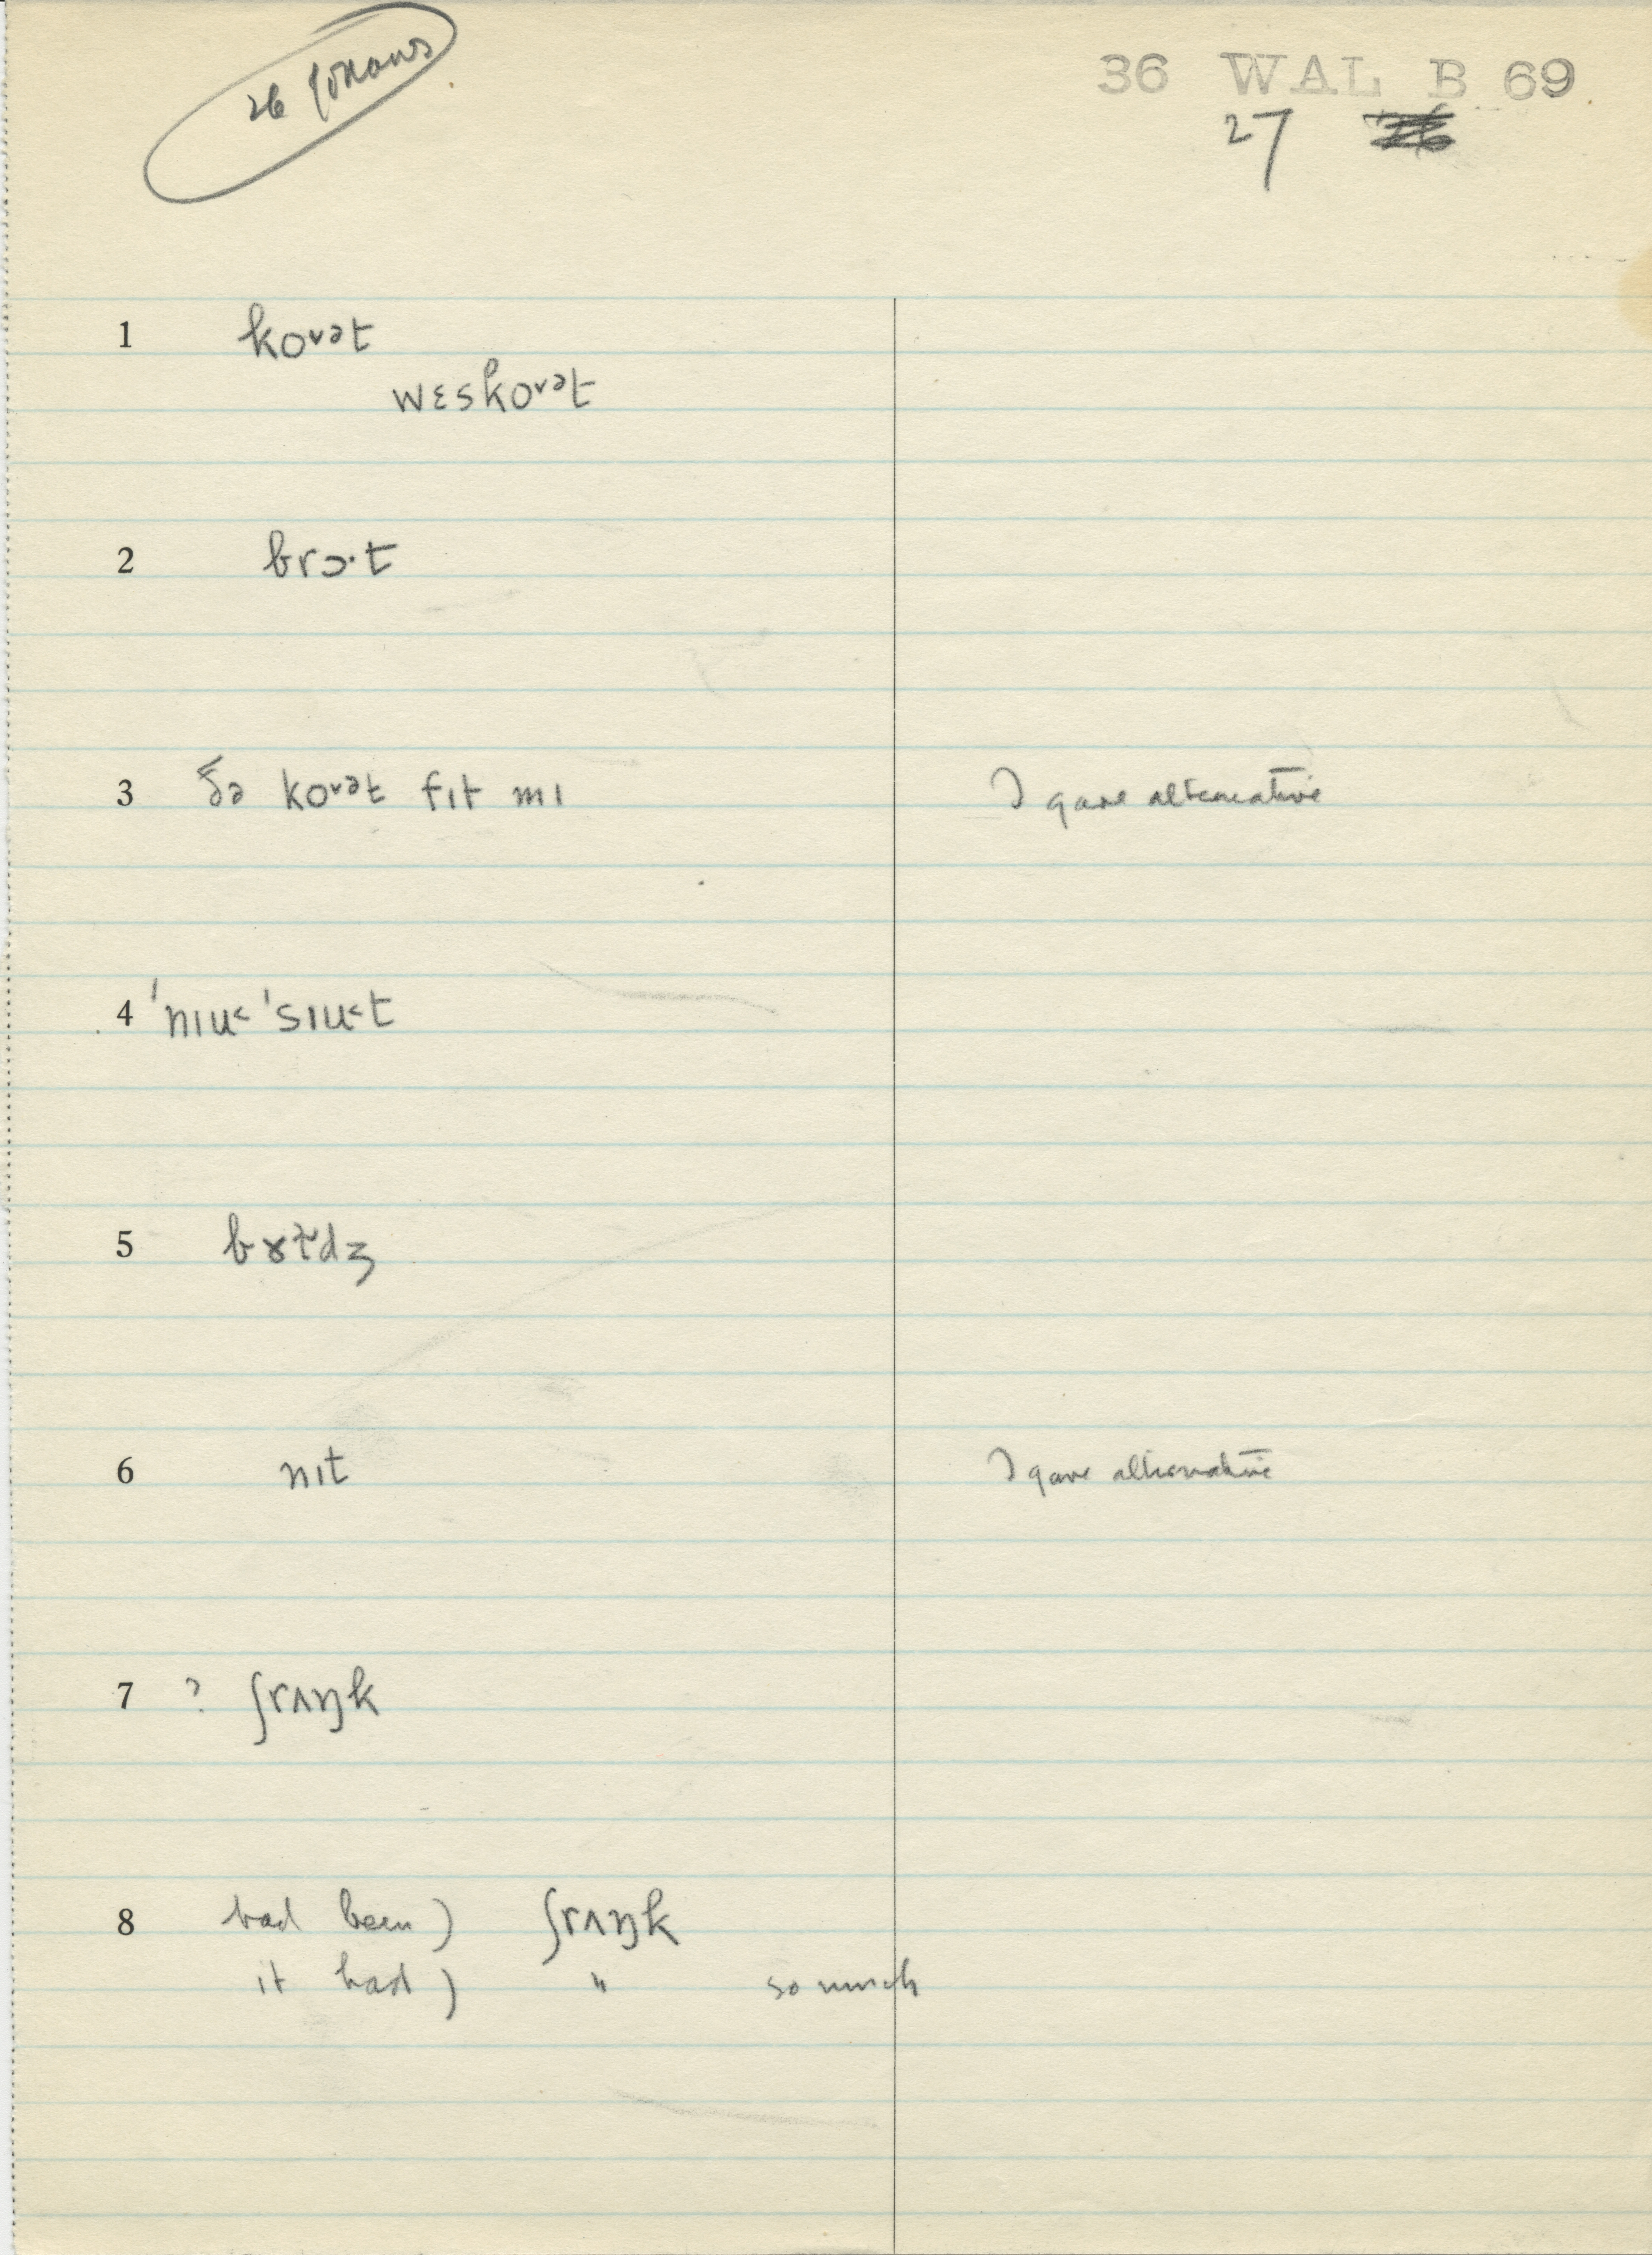 36 WAL B 69
27
1 koᵛᵊt
wɛskoᵛᵊt
2 brɔ·t
3 ðə koᵛᵊt fɪt mɪ I gave alternative
4 ˈnɪu˂ ˈsɪu˂t
5 bɤɚdʒ
6 nɪt I gave alternative
7 ? ʃrʌŋk
8 had been) ʃrʌŋk
it had) " so much